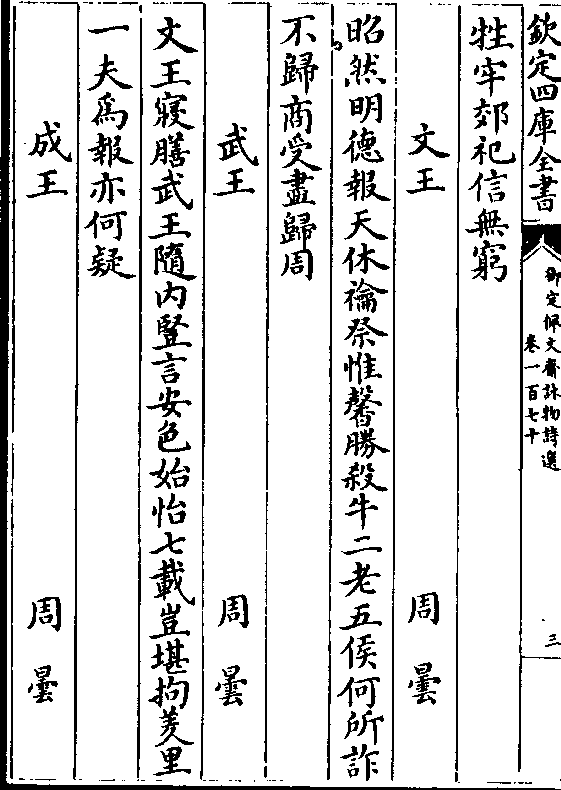 欽定四庫全書
御定佩文齋詠物詩選
卷一百七十
三
牲牢郊祀信無窮
文王 周曇
昭然明德報天休禴祭惟馨勝殺牛二老五侯何所詐
不歸商受盡歸周
武王 周曇
文王寢膳武王隨內豎言安色始怡七載豈堪拘羑里
一夫為報亦何疑
成王 周曇